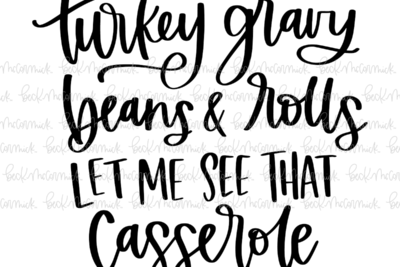 turkey gravy
beans & rolls
LET ME SEE THAT
casserole